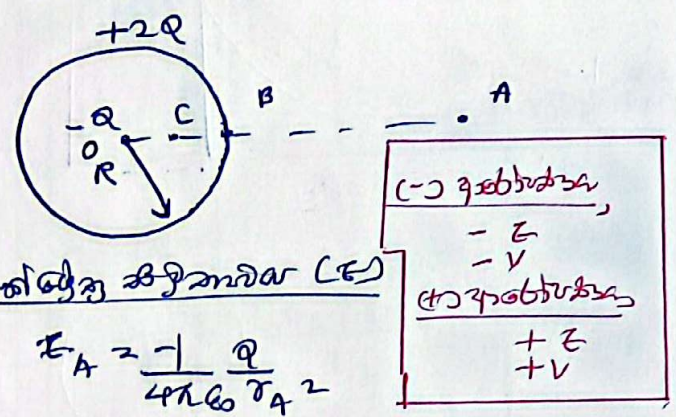 +2Q
B
A
- Q
C
O
R
(-) ආරෝපණය
- E
- V
(+) ආරෝපණය
+ E
+ V
ක්ෂේත්‍ර තීව්‍රතාවය (E)
E_A = -1/4πε₀ Q/r_A²